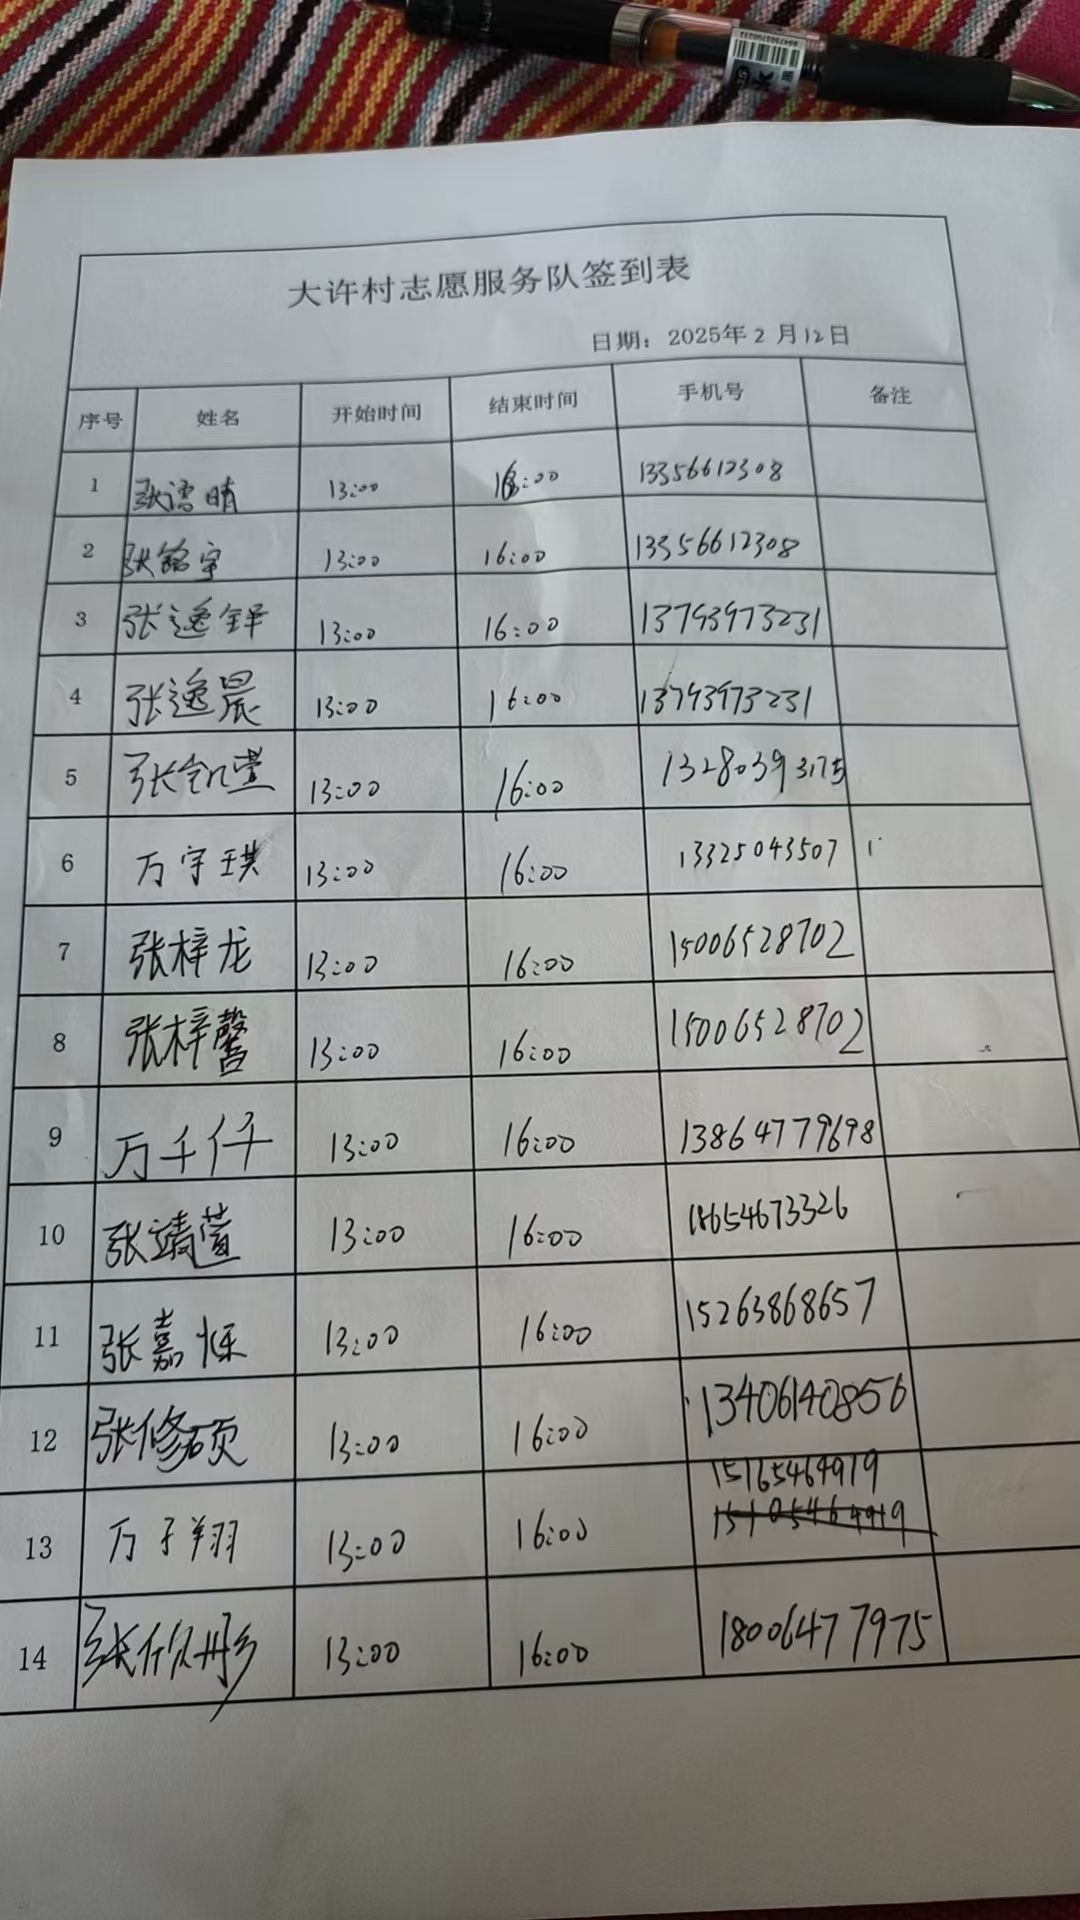 大许村志愿服务队签到表
日期：2025年2月12日
序号 姓名 开始时间 结束时间 手机号 备注
1 张澐晴 13:00 16:00 13356612308
2 张铭宇 13:00 16:00 13356612308
3 张逸铎 13:00 16:00 13793973231
4 张逸晨 13:00 16:00 13793973231
5 张钒萱 13:00 16:00 13280393175
6 万宇琪 13:00 16:00 13325043507
7 张梓龙 13:00 16:00 15006528702
8 张梓馨 13:00 16:00 15006528702
9 万千仟 13:00 16:00 13864779698
10 张靖萱 13:00 16:00 18654673326
11 张嘉烁 13:00 16:00 15263868657
12 张修硕 13:00 16:00 13406140856
13 万子翔 13:00 16:00 15165464919
14 张欣彤 13:00 16:00 18006477975